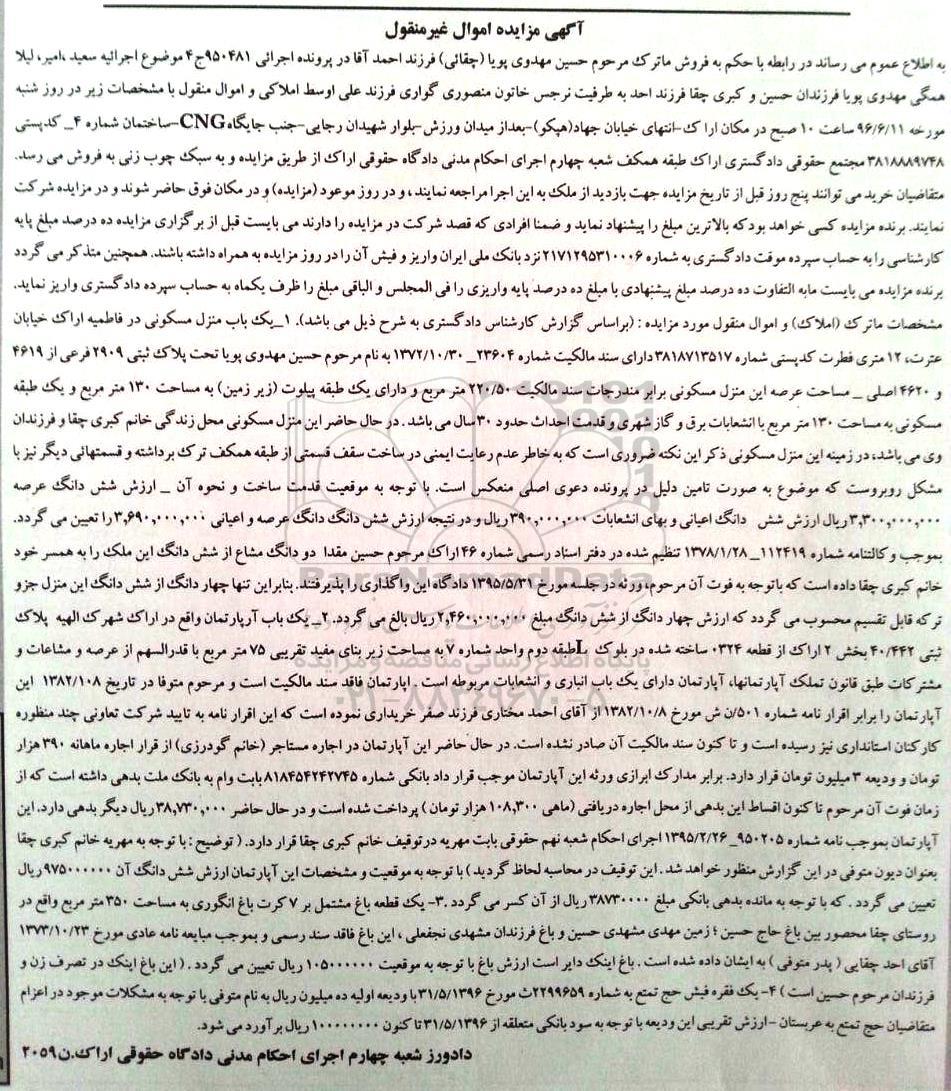 آگهی مزایده اموال غیرمنقول
به اطلاع عموم می رساند در رابطه با حکم به فروش ماترک مرحوم حسین مهدوی پویا (چقائی) فرزند احمد آقا در پرونده اجرائی ۹۵۰۴۸۱ج۴ موضوع اجرائیه سعید ،امیر، لیلا
همگی مهدوی پویا فرزندان حسین و کبری چقا فرزند احد به طرفیت نرجس خاتون منصوری گواری فرزند علی اوسط املاکی و اموال منقول با مشخصات زیر در روز شنبه
مورخه ۹۶/۶/۱۱ ساعت ۱۰ صبح در مکان اراک-انتهای خیابان جهاد(هپکو)-بعداز میدان ورزش-بلوار شهیدان رجایی-جنب جایگاه CNG-ساختمان شماره ۴_ کدپستی
۳۸۱۸۸۸۹۷۴۸ مجتمع حقوقی دادگستری اراک طبقه همکف شعبه چهارم اجرای احکام مدنی دادگاه حقوقی اراک از طریق مزایده و به سبک چوب زنی به فروش می رسد.
متقاضیان خرید می توانند پنج روز قبل از تاریخ مزایده جهت بازدید از ملک به این اجرا مراجعه نمایند ، و در روز موعود (مزایده) و در مکان فوق حاضر شوند و در مزایده شرکت
نمایند. برنده مزایده کسی خواهد بود که بالاترین مبلغ را پیشنهاد نماید و ضمنا افرادی که قصد شرکت در مزایده را دارند می بایست قبل از برگزاری مزایده ده درصد مبلغ پایه
کارشناسی را به حساب سپرده موقت دادگستری به شماره ۲۱۷۱۲۹۵۳۱۰۰۰۶ نزد بانک ملی ایران واریز و فیش آن را در روز مزایده به همراه داشته باشند. همچنین متذکر می گردد
برنده مزایده می بایست مابه التفاوت ده درصد مبلغ پیشنهادی با مبلغ ده درصد پایه واریزی را فی المجلس و الباقی مبلغ را ظرف یکماه به حساب سپرده دادگستری واریز نماید.
مشخصات ماترک (املاک) و اموال منقول مورد مزایده : (براساس گزارش کارشناس دادگستری به شرح ذیل می باشد). ۱_یک باب منزل مسکونی در فاطمیه اراک خیابان
عترت، ۱۲ متری فطرت کدپستی شماره ۳۸۱۸۷۱۳۵۱۷ دارای سند مالکیت شماره ۲۳۶۰۴_ ۱۳۷۲/۱۰/۳۰ به نام مرحوم حسین مهدوی پویا تحت پلاک ثبتی ۲۹۰۹ فرعی از ۴۶۱۹
و ۴۶۲۰ اصلی _ مساحت عرصه این منزل مسکونی برابر مندرجات سند مالکیت ۲۲۰/۵۰ متر مربع و دارای یک طبقه پیلوت (زیر زمین) به مساحت ۱۳۰ متر مربع و یک طبقه
مسکونی به مساحت ۱۳۰ متر مربع با انشعابات برق و گاز شهری و قدمت احداث حدود ۳۰ سال می باشد . در حال حاضر این منزل مسکونی محل زندگی خانم کبری چقا و فرزندان
وی می باشد، در زمینه این منزل مسکونی ذکر این نکته ضروری است که به خاطر عدم رعایت ایمنی در ساخت سقف قسمتی از طبقه همکف ترک برداشته و قسمتهائی دیگر نیز با
مشکل روبروست که موضوع به صورت تامین دلیل در پرونده دعوی اصلی منعکس است. با توجه به موقعیت قدمت ساخت و نحوه آن _ ارزش شش دانگ عرصه
۳,۳۰۰,۰۰۰,۰۰۰ ریال ارزش شش دانگ اعیانی و بهای انشعابات ۳۹۰,۰۰۰,۰۰۰ ریال و در نتیجه ارزش شش دانگ دانگ عرصه و اعیانی ۳,۶۹۰,۰۰۰,۰۰۰ را تعیین می گردد.
بموجب وکالتنامه شماره ۱۱۲۴۱۹_ ۱۳۷۸/۱/۲۸ تنظیم شده در دفتر اسناد رسمی شماره ۴۶ اراک مرحوم حسین مقدا دو دانگ مشاع از شش دانگ این ملک را به همسر خود
خانم کبری چقا داده است که باتوجه به فوت آن مرحوم، ورثه در جلسه مورخ ۱۳۹۵/۵/۳۱ دادگاه این واگذاری را پذیرفتند. بنابراین تنها چهار دانگ از شش دانگ این منزل جزو
ترکه قابل تقسیم محسوب می گردد که ارزش چهار دانگ از شش دانگ مبلغ ۲,۴۶۰,۰۰۰,۰۰۰ ریال بالغ می گردد. ۲_ یک باب آپارتمان واقع در اراک شهرک الهیه پلاک
ثبتی ۴۰/۴۴۲ بخش ۲ اراک از قطعه ۰۳۲۴ ساخته شده در بلوک L طبقه دوم واحد شماره ۷ به مساحت زیر بنای مفید تقریبی ۷۵ متر مربع با قدرالسهم از عرصه و مشاعات و
مشترکات طبق قانون تملک آپارتمانها، آپارتمان دارای یک باب انباری و انشعابات مربوطه است . اپارتمان فاقد سند مالکیت است و مرحوم متوفا در تاریخ ۱۳۸۲/۱۰۸ این
آپارتمان را برابر اقرار نامه شماره ۵۰۱/ن ش مورخ ۱۳۸۲/۱۰/۸ از آقای احمد مختاری فرزند صفر خریداری نموده است که این اقرار نامه به تایید شرکت تعاونی چند منظوره
کارکنان استانداری نیز رسیده است و تا کنون سند مالکیت آن صادر نشده است. در حال حاضر این آپارتمان در اجاره مستاجر (خانم گودرزی) از قرار اجاره ماهانه ۳۹۰ هزار
تومان و ودیعه ۳ میلیون تومان قرار دارد. برابر مدارک ابرازی ورثه این آپارتمان موجب قرار داد بانکی شماره ۸۱۸۴۵۴۲۴۲۷۴۵ بابت وام به بانک ملت بدهی داشته است که از
زمان فوت آن مرحوم تا کنون اقساط این بدهی از محل اجاره دریافتی (ماهی ۱۰۸,۳۰۰ هزار تومان ) پرداخت شده است و در حال حاضر ۳۸,۷۳۰,۰۰۰ ریال دیگر بدهی دارد. این
آپارتمان بموجب نامه شماره ۹۵۰۲۰۵_ ۱۳۹۵/۲/۲۶ اجرای احکام شعبه نهم حقوقی بابت مهریه در توقیف خانم کبری چقا قرار دارد. ( توضیح : با توجه به مهریه خانم کبری چقا
بعنوان دیون متوفی در این گزارش منظور خواهد شد . این توقیف در محاسبه لحاظ گردید ) با توجه به موقعیت و مشخصات این آپارتمان ارزش شش دانگ آن ۹۷۵۰۰۰۰۰۰ ریال
تعیین می گردد . که با توجه به مانده بدهی بانکی مبلغ ۳۸۷۳۰۰۰۰ ریال از آن کسر می گردد .۳- یک قطعه باغ مشتمل بر ۷ کرت باغ انگوری به مساحت ۳۵۰ متر مربع واقع در
روستای چقا محصور بین باغ حاج حسین ؛ زمین مهدی مشهدی حسین و باغ فرزندان مشهدی نجفعلی ، این باغ فاقد سند رسمی و بموجب مبایعه نامه عادی مورخ ۱۳۷۳/۱۰/۲۳
آقای احد چقایی ( پدر متوفی ) به ایشان داده شده است . باغ اینک دایر است ارزش باغ با توجه به موقعیت ۱۰۵۰۰۰۰۰۰ ریال تعیین می گردد . ( این باغ اینک در تصرف زن و
فرزندان مرحوم حسین است ) ۴- یک فقره فیش حج تمتع به شماره ۲۲۹۹۶۵۹ث مورخ ۳۱/۵/۱۳۹۶ با ودیعه اولیه ده میلیون ریال به نام متوفی با توجه به مشکلات موجود در اعزام
متقاضیان حج تمتع به عربستان - ارزش تقریبی این ودیعه با توجه به سود بانکی متعلقه از ۳۱/۵/۱۳۹۶ تا کنون ۱۰۰۰۰۰۰۰۰ ریال برآورد می شود.
دادورز شعبه چهارم اجرای احکام مدنی دادگاه حقوقی اراک.ن۲۰۵۹
پایگاه اطلاع رسانی مناقصه و مزایده